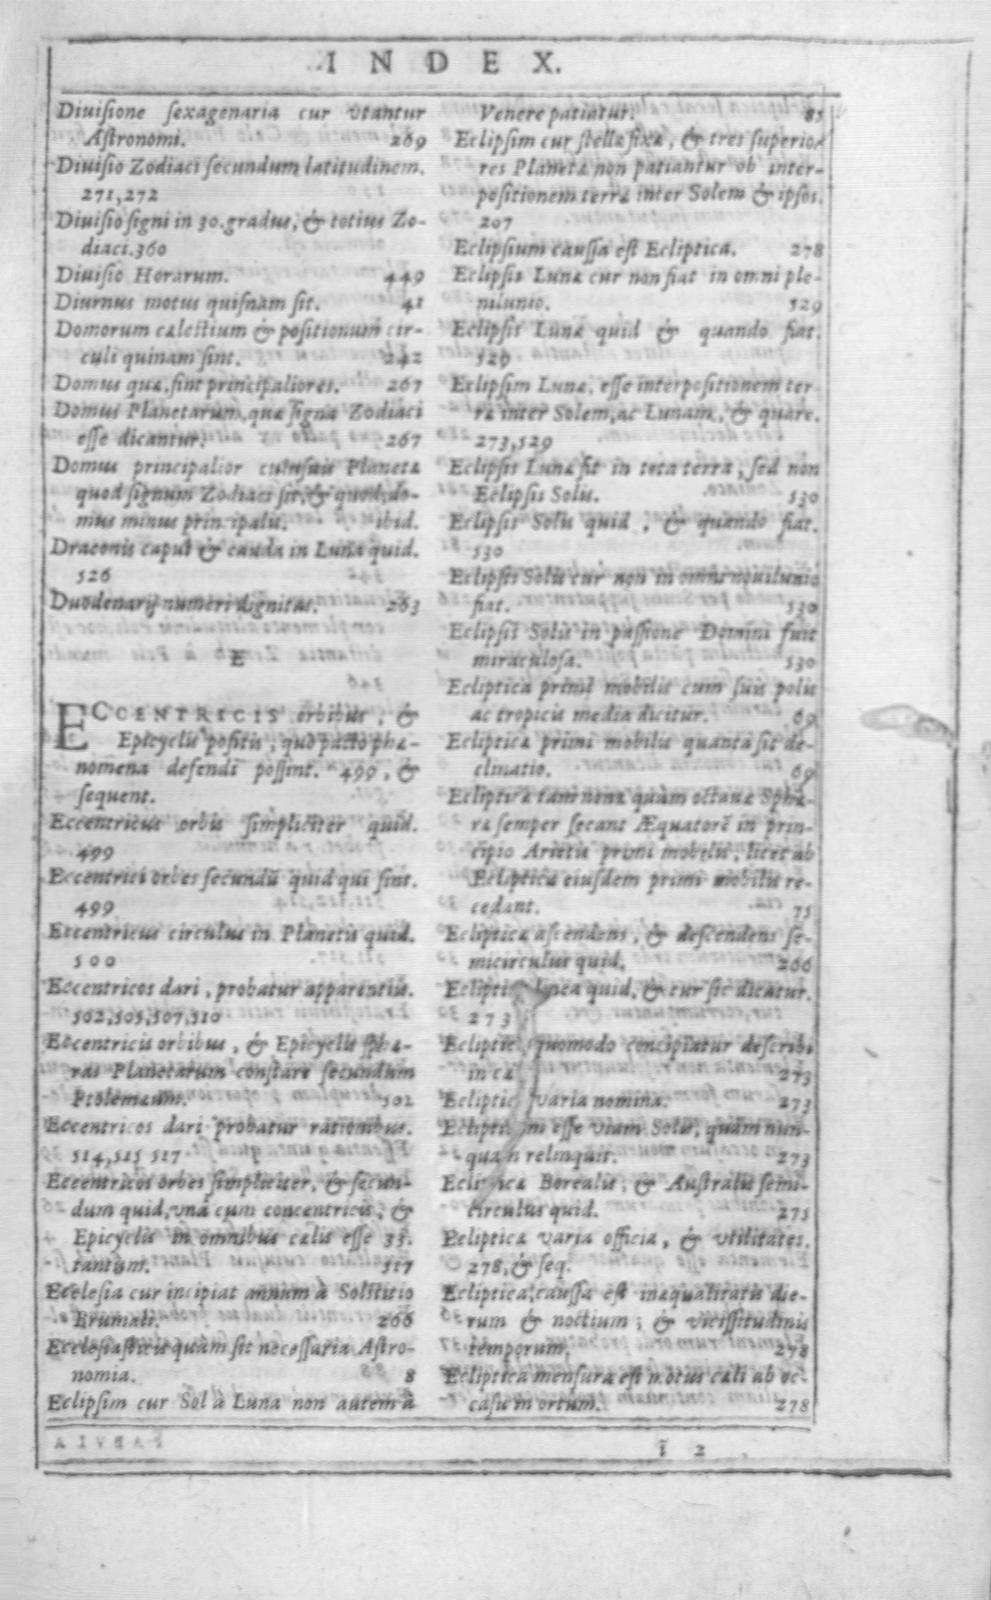 INDEX.
Diuisione sexagenaria cur vtantur
Astronomi. 269
Diuisio Zodiaci secundum latitudinem.
271,272
Diuisio signi in 30.gradus, & totius Zo-
diaci.360
Diuisio Horarum. 449
Diurnus motus quisnam sit. 41
Domorum cælestium & positionum cir-
culi quinam sint. 242
Domus quæ sint principaliores. 267
Domus Planetarum, quæ signa Zodiaci
esse dicantur. 267
Domus principalior cuiusuis Planetæ
quod signum Zodiaci sit, & quod, do-
mus minus principalis. ibid.
Draconis caput & cauda in Luna quid.
526
Duodenarij numeri dignitas. 263
E
ECCENTRICIS orbibus, &
Epicyclis positis, quo pacto phæ-
nomena defendi possint. 499, &
sequent.
Eccentricus orbis simpliciter quid.
499
Eccentrici orbes secundũ quid qui sint.
499
Eccentricus circulus in Planetis quid.
500
Eccentricos dari, probatur apparentiis.
502,505,507,510
Eccentricis orbibus, & Epicyclis sphæ-
ras Planetarum constare secundum
Ptolemæum. 502
Eccentricos dari probatur rationibus.
514,515 517
Eccentricos orbes simpliciter, & secun-
dum quid, vnà cum concentricis, &
Epicyclis in omnibus cælis esse 33.
tantum. 517
Ecclesia cur incipiat annum à Solstitio
Brumali. 266
Ecclesiasticis quàm sit necessaria Astro-
nomia. 8
Eclipsim cur Sol à Luna non autem à
Venere patiatur. 85
Eclipsim cur stellæ fixæ, & tres superio-
res Planetæ non patiantur ob inter-
positionem terræ inter Solem & ipsos.
207
Eclipsium caussa est Ecliptica. 278
Eclipsis Lunæ cur non fiat in omni ple-
nilunio. 529
Eclipsis Lunæ quid & quando fiat.
529
Eclipsim Lunæ, esse interpositionem ter-
ræ inter Solem, ac Lunam, & quare.
273,529
Eclipsis Lunæ fit in tota terra, sed non
Eclipsis Solis. 530
Eclipsis Solis quid, & quando fiat.
530
Eclipsis Solis cur non in omni nouilunio
fiat. 530
Eclipsis Solis in passione Domini fuit
miraculosa. 530
Ecliptica primi mobilis cum suis polis
ac tropicis media dicitur. 69
Eclipticæ primi mobilis quanta sit de-
clinatio. 69
Eclipticæ tam nonæ quàm octauæ Sphæ-
ræ semper secant Æquatorẽ in prin-
cipio Arietis primi mobilis, licet ab
Ecliptica eiusdem primi mobilis re-
cedant. 75
Eclipticæ ascendens, & descendens se-
micirculus quid. 266
linea quid, & cur sic dicatur.
273
quomodo concipiatur describi
in 273
varia nomina. 273
esse viam Solis, quàm nun-
quam relinquit. 273
Eclipticæ Borealis, & Australis semi-
circulus quid. 275
Eclipticæ varia officia, & vtilitates.
278, & seq.
Ecliptica, caussa est inæqualitatis die-
rum & noctium; & vicissitudinis
temporum. 278
Ecliptica mensura est motus cæli ab oc-
casu in ortum. 278
ĩ 2